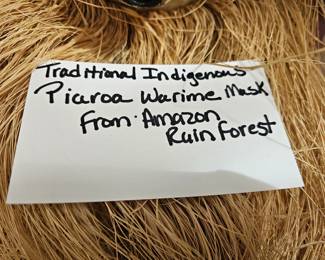 Traditional Indigenous
Piaroa Warime Mask
from Amazon
Rain Forest